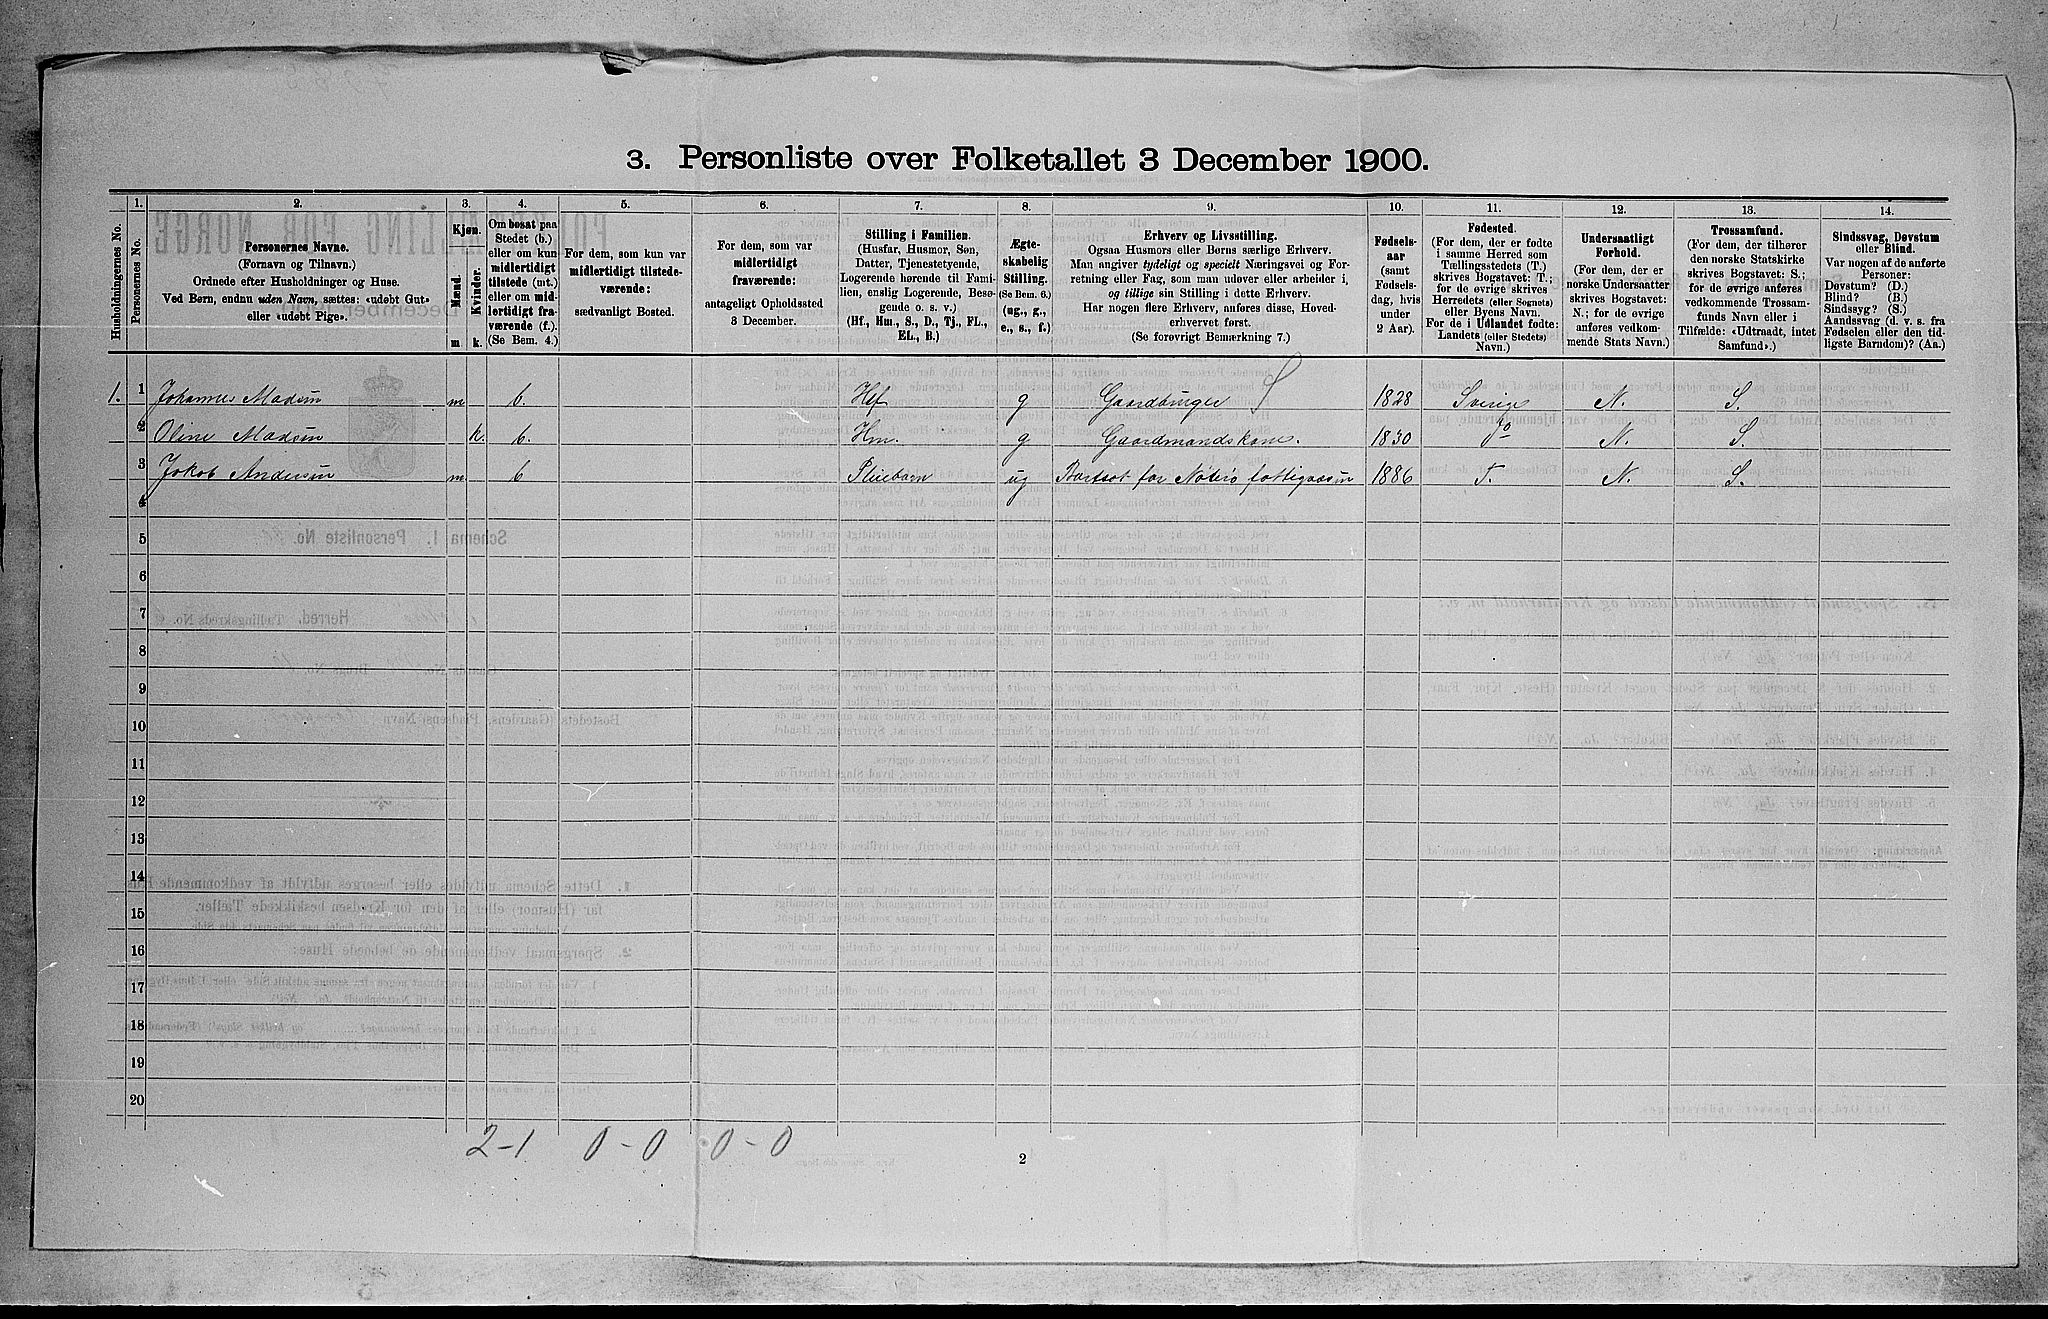 3. Personliste over Folketallet 3 December 1900.
Husholdningernes No.
1.
Personernes No.
2.
Personernes Navne.
(Fornavn og Tilnavn.)
Ordnede efter Husholdninger og Huse.
Ved Børn, endnu uden Navn, sættes: «udøbt Gut»
eller «udøbt Pige».
3.
Kjøn.
Mænd.
m
Kvinder.
k.
4.
Om bosat paa
Stedet (b.)
eller om kun
midlertidigt
tilstede (mt.)
eller om mid-
lertidigt fra-
værende (f.)
(Se Bem. 4.)
5.
For dem, som kun var
midlertidigt tilstede-
værende:
sædvanligt Bosted.
6.
For dem, som var
midlertidigt
fraværende:
antageligt Opholdssted
3 December.
7.
Stilling i Familien.
(Husfar, Husmor, Søn,
Datter, Tjenestetyende,
Logerende hørende til Fami-
lien, enslig Logerende, Besø-
gende o. s. v.)
(Hf., Hm., S., D., Tj., FL.,
EL., B.)
8.
Ægte-
skabelig
Stilling.
(Se Bem. 6.)
(ug., g.,
e., s., f.)
9.
Erhverv og Livsstilling.
Ogsaa Husmors eller Børns særlige Erhverv.
Man angiver tydeligt og specielt Næringsvei og For-
retning eller Fag, som man udøver eller arbeider i,
og tillige sin Stilling i dette Erhverv.
Har nogen flere Erhverv, anføres disse, Hoved-
erhvervet først.
(Se forøvrigt Bemærkning 7.)
10.
Fødsels-
aar
(samt
Fødsels-
dag, hvis
under
2 Aar).
11.
Fødested.
(For dem, der er fødte
i samme Herred som
Tællingsstedets (T.)
skrives Bogstavet: T.;
for de øvrige skrives
Herredets (eller Sognets)
eller Byens Navn.
For de i Udlandet fødte:
Landets (eller Stedets)
Navn.)
12.
Undersaatligt
Forhold.
(For dem, der er
norske Undersaatter
skrives Bogstavet:
N.; for de øvrige
anføres vedkom-
mende Stats Navn.)
13.
Trossamfund.
(For dem, der tilhører
den norske Statskirke
skrives Bogstavet: S.;
for de øvrige anføres
vedkommende Trossam-
funds Navn eller i
Tilfælde: «Udtraadt, intet
Samfund».)
14.
Sindssvag, Døvstum
eller Blind.
Var nogen af de anførte
Personer:
Døvstum? (D.)
Blind? (B.)
Sindssyg? (S.)
Aandssvag (d. v. s. fra
Fødselen eller den tid-
ligste Barndom)? (Aa.)
1. 1 Johannes Madsen m b. Hf g Gaardbruger S 1828 Sverige N. S.
2 Oline Madsen k. b. Hm. g Gaardmandskone. 1830 do N. S.
3 Jakob Andersen m b Pliebarn ug Bortsat for Nøterø fattigvæsen 1886 T. N. S.
4
5
6
7
8
9
10
11
12
13
14
15
16
17
18
19
20
2-1 0-0 0-0
2